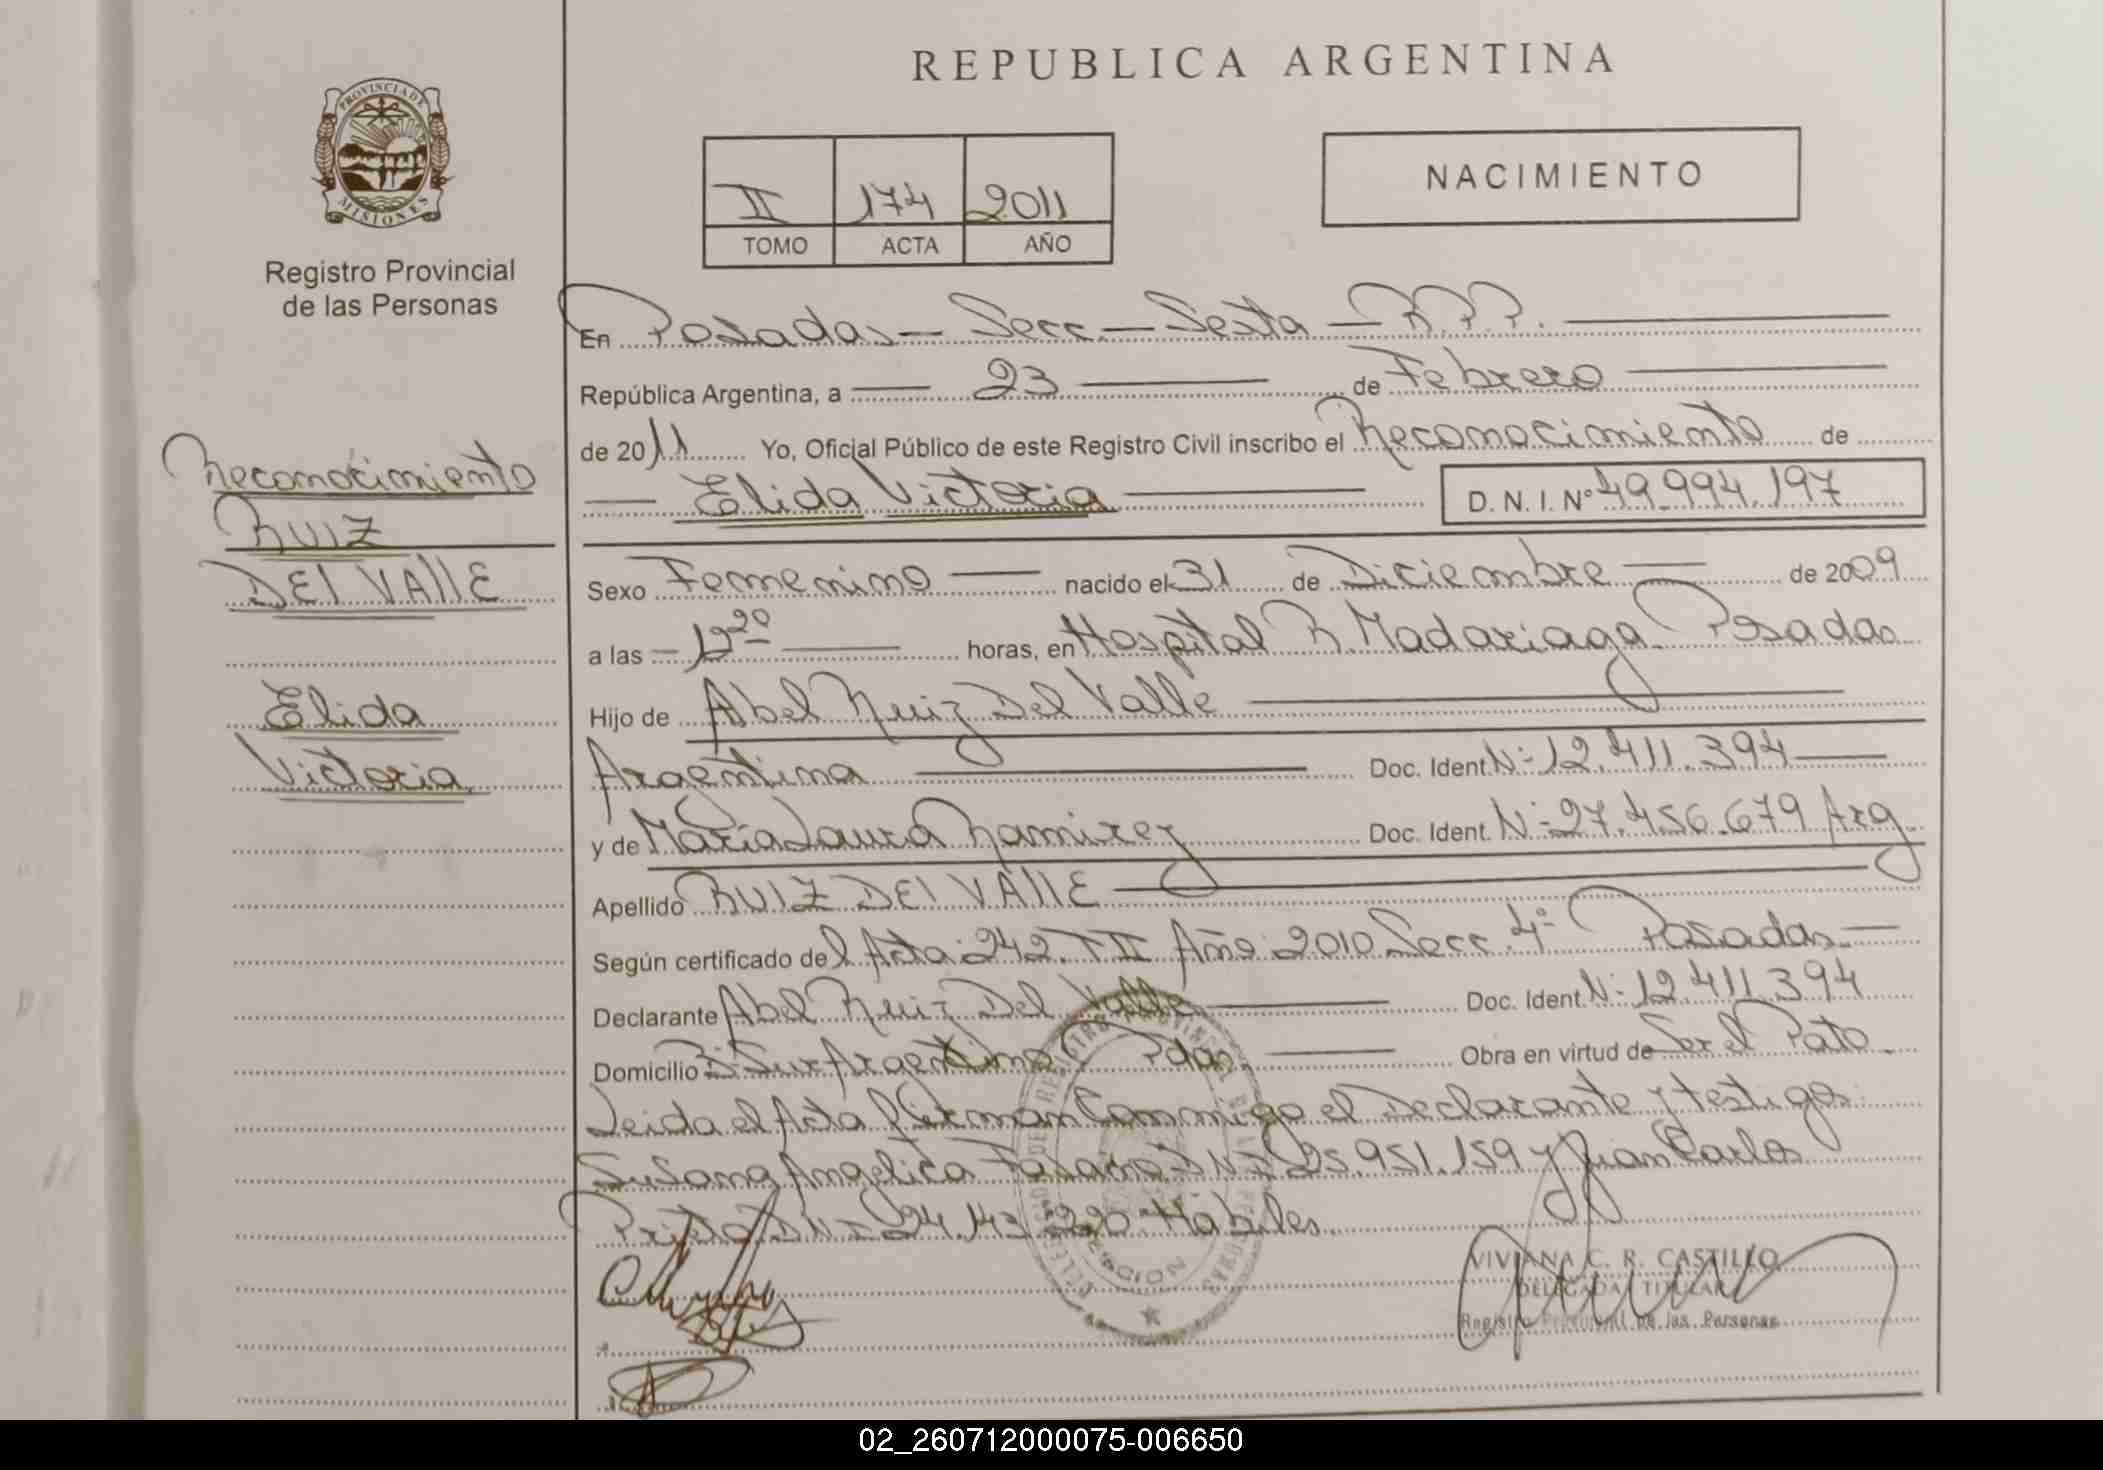 REPUBLICA ARGENTINA
PROVINCIA DE
MISIONES
Registro Provincial
de las Personas
II 174 2011
TOMO ACTA AÑO
NACIMIENTO
Reconocimiento
RUIZ
DEl VAllE
Elida
Victoria
En Posadas - Secc. - Sexta - R.P.P.
República Argentina, a 23 de Febrero
de 2011 Yo, Oficial Público de este Registro Civil inscribo el Reconocimiento de
Elida Victoria D. N. I. Nº 49.994.197
Sexo Femenino nacido el 31 de Diciembre de 2009
a las 12 20 horas, en Hospital R. Madariaga Posadas
Hijo de Abel Ruiz Del Valle
Argentina Doc. Ident. Nº 12.411.394
y de María Laura Ramirez Doc. Ident. Nº 27.456.679 Arg.
Apellido RUIZ DEl VAllE
Según certificado del Acta: 242. T II Año: 2010 Secc. 4º Posadas
Declarante Abel Ruiz Del Valle Doc. Ident. Nº 12.411.394
Domicilio Bº Sur Argentino Pdas. Obra en virtud de Ser el Pato
Leida el Acta firman Conmigo el Declarante y testigos:
Susana Angelica DNI 25.951.159 y Juan Carlos
DNI 24.143.220 Hábiles.
VIVIANA C. R. CASTILLO
DELEGADA TITULAR
Registro Provincial de las Personas
02_260712000075-006650